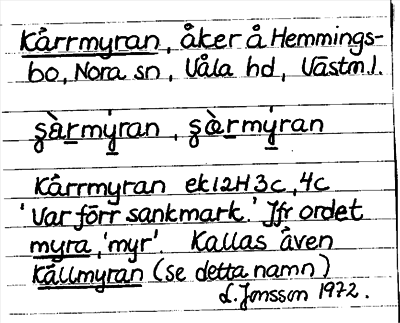 Kärrmyran, åker å Hemmings-
bo, Nora sn, Våla hd, Västm.l.
Kärrmyran ek 12H 3c, 4c
'Var förr sankmark.' Jfr ordet
myra, 'myr'. Kallas även
Källmyran (se detta namn)
L. Jonsson 1972.